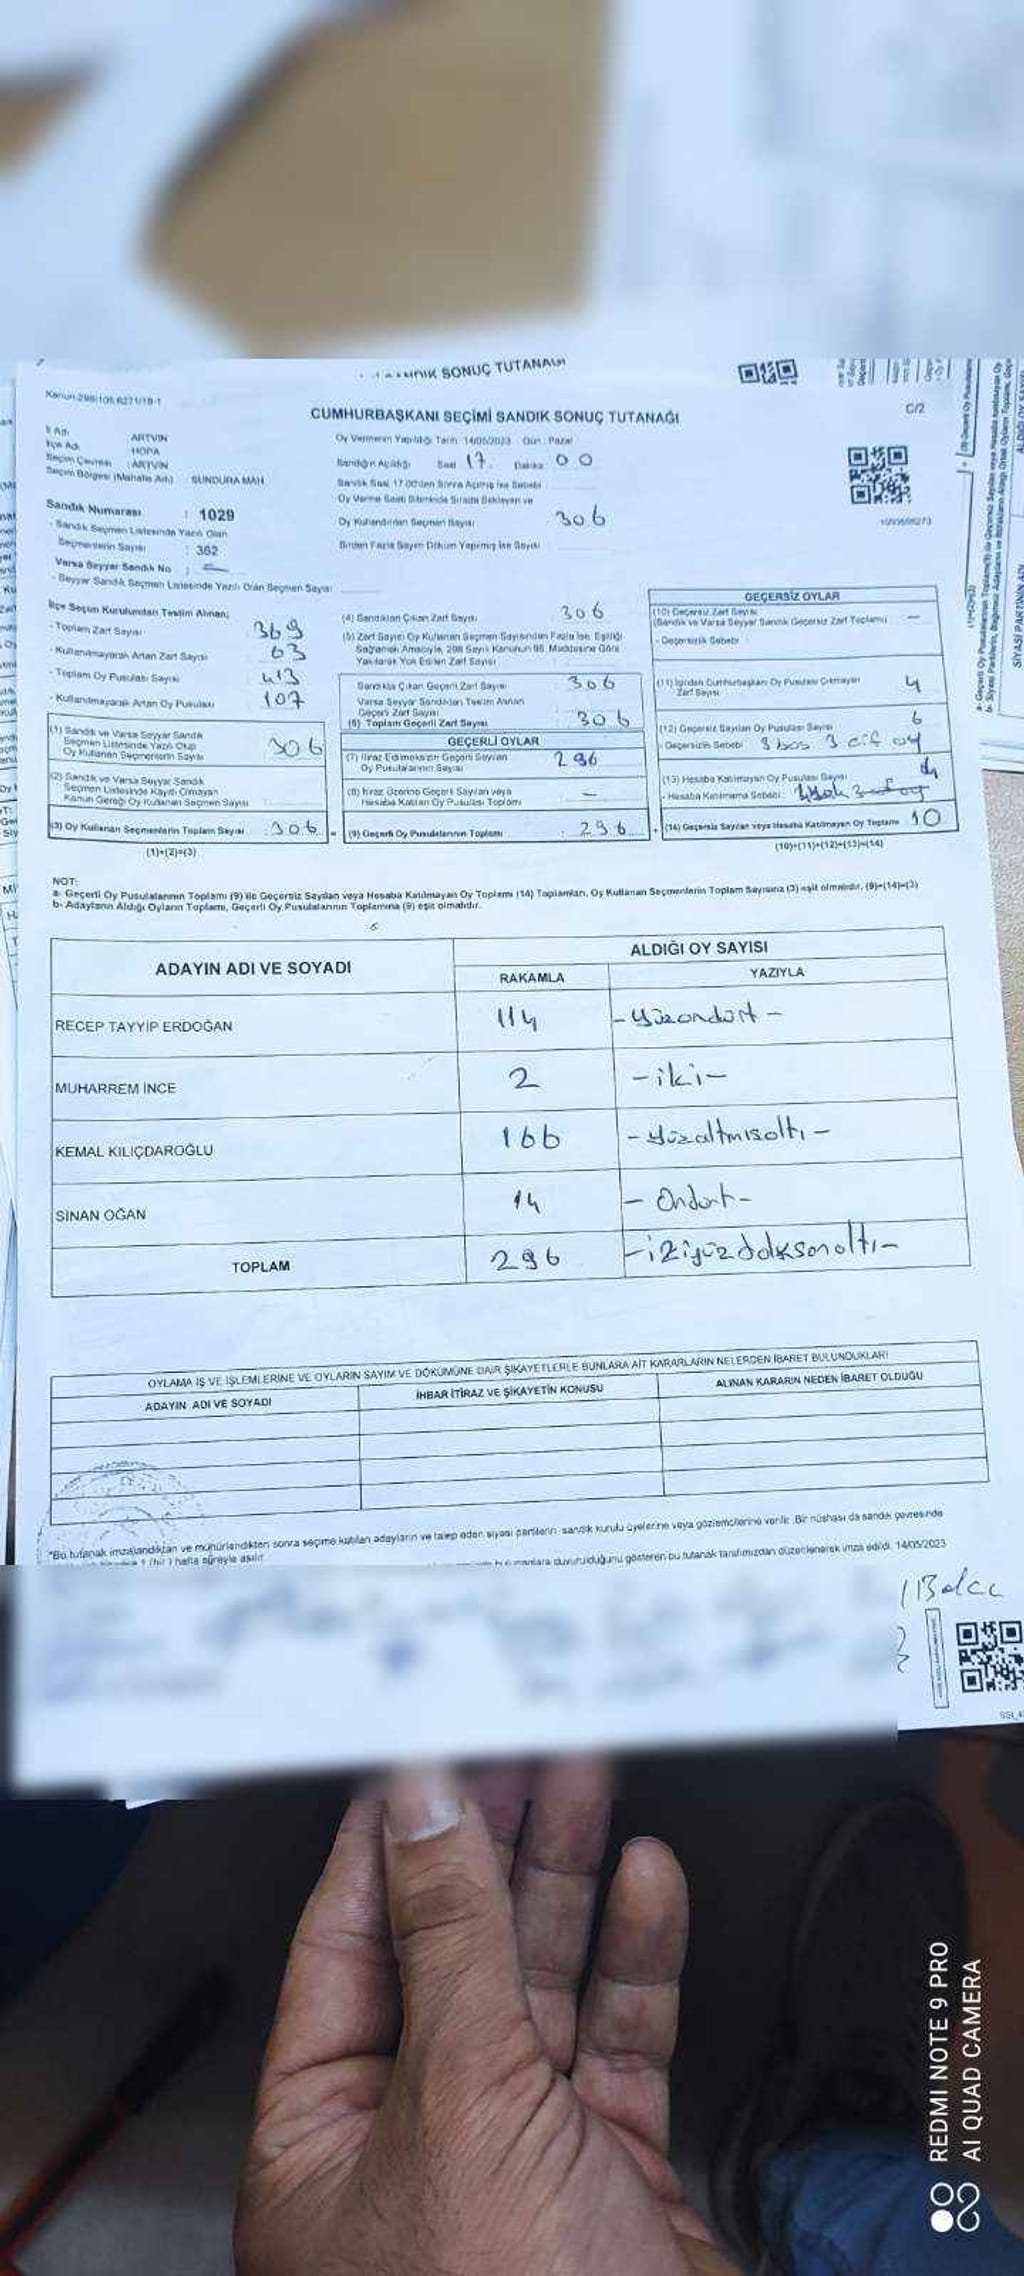 SANDIK SONUÇ TUTANAĞI
CUMHURBAŞKANI SEÇİMİ SANDIK SONUÇ TUTANAĞI
C/2
İl Adı ARTVİN
İlçe Adı HOPA
Seçim Çevresi : ARTVİN
Seçim Bölgesi (Mahalle Adı) SUNDURA MAH
Sandık Numarası : 1029
- Sandık Seçmen Listesinde Yazılı Olan
Seçmenlerin Sayısı : 362
Varsa Seyyar Sandık No : -
- Seyyar Sandık Seçmen Listesinde Yazılı Olan Seçmen Sayısı
Oy Vermenin Yapıldığı Tarih: 14/05/2023 Gün: Pazar
Sandığın Açıldığı Saat 17. Dakika 00
Sandık Saat 17.00'den Sonra Açılmış İse Sebebi
Oy Verme Saati Bitiminde Sırada Bekleyen ve
Oy Kullandırılan Seçmen Sayısı 306
Birden Fazla Sayım Döküm Yapılmış İse Sayısı
İlçe Seçim Kurulundan Teslim Alınan;
- Toplam Zarf Sayısı 369
- Kullanılmayarak Artan Zarf Sayısı 63
- Toplam Oy Pusulası Sayısı 413
- Kullanılmayarak Artan Oy Pusulası 107
(1) Sandık ve Varsa Seyyar Sandık
Seçmen Listesinde Yazılı Olup
Oy Kullanan Seçmenlerin Sayısı 306
(2) Sandık ve Varsa Seyyar Sandık
Seçmen Listesinde Kayıtlı Olmayan
Kanun Gereği Oy Kullanan Seçmen Sayısı
(3) Oy Kullanan Seçmenlerin Toplam Sayısı : 306
(1)+(2)=(3)
(4) Sandıktan Çıkan Zarf Sayısı 306
(5) Zarf Sayısı Oy Kullanan Seçmen Sayısından Fazla İse, Eşitliği
Sağlamak Amacıyla, 298 Sayılı Kanunun 98. Maddesine Göre
Yakılarak Yok Edilen Zarf Sayısı
Sandıkta Çıkan Geçerli Zarf Sayısı 306
Varsa Seyyar Sandıktan Teslim Alınan
Geçerli Zarf Sayısı
(6) Toplam Geçerli Zarf Sayısı 306
GEÇERLİ OYLAR
(7) İtiraz Edilmeksizin Geçerli Sayılan
Oy Pusulalarının Sayısı 296
(8) İtiraz Üzerine Geçerli Sayılan veya
Hesaba Katılan Oy Pusulası Toplamı -
(9) Geçerli Oy Pusulalarının Toplamı : 296
GEÇERSİZ OYLAR
(10) Geçersiz Zarf Sayısı
(Sandık ve Varsa Seyyar Sandık Geçersiz Zarf Toplamı) -
- Geçersizlik Sebebi
(11) İçinden Cumhurbaşkanı Oy Pusulası Çıkmayan
Zarf Sayısı 4
(12) Geçersiz Sayılan Oy Pusulası Sayısı 6
- Geçersizlik Sebebi 3 boş 3 çift oy
(13) Hesaba Katılmayan Oy Pusulası Sayısı
- Hesaba Katılmama Sebebi:
(14) Geçersiz Sayılan veya Hesaba Katılmayan Oy Toplamı 10
(10)+(11)+(12)+(13)=(14)
NOT:
a- Geçerli Oy Pusulalarının Toplamı (9) ile Geçersiz Sayılan veya Hesaba Katılmayan Oy Toplamı (14) Toplamları, Oy Kullanan Seçmenlerin Toplam Sayısına (3) eşit olmalıdır. (9)+(14)=(3)
b- Adayların Aldığı Oyların Toplamı, Geçerli Oy Pusulalarının Toplamına (9) eşit olmalıdır.
ADAYIN ADI VE SOYADI ALDIĞI OY SAYISI
RAKAMLA YAZIYLA
RECEP TAYYİP ERDOĞAN 114 -Yüzondört-
MUHARREM İNCE 2 -iki-
KEMAL KILIÇDAROĞLU 166 -Yüzaltmışaltı-
SİNAN OĞAN 14 -Ondört-
TOPLAM 296 -ikiyüzdoksanaltı-
OYLAMA İŞ VE İŞLEMLERİNE VE OYLARIN SAYIM VE DÖKÜMÜNE DAİR ŞİKAYETLERLE BUNLARA AİT KARARLARIN NELERDEN İBARET BULUNDUKLARI
ADAYIN ADI VE SOYADI İHBAR İTİRAZ VE ŞİKAYETİN KONUSU ALINAN KARARIN NEDEN İBARET OLDUĞU
*Bu tutanak imzalandıktan ve mühürlendikten sonra seçime katılan adayların ve talep eden siyasi partilerin sandık kurulu üyelerine veya gözlemcilerine verilir. Bir nüshası da sandık çevresinde
1 (bir) hafta süreyle asılır.
duyurulduğunu gösteren bu tutanak tarafımızdan düzenlenerek imza edildi. 14/05/2023
REDMI NOTE 9 PRO
AI QUAD CAMERA